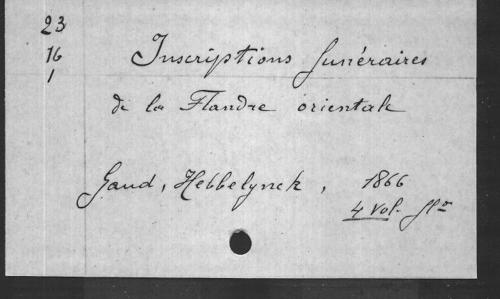 23
16
1
Inscriptions funéraires
de la Flandre orientale
Gand, Hebbelynck, 1866
4 vol. fl°